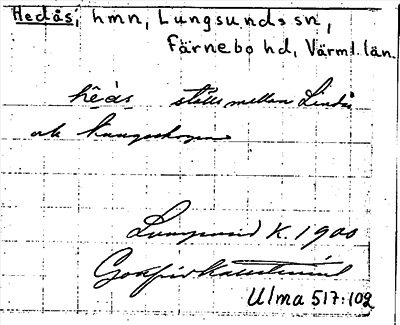 Hedås, hmn, Lungsunds sn,
Färnebo hd, Värml. län.
hêås ställe mellan Lindås
och Kungsskogen
Lungsund K. 1900
Gottfrid Kallstenius
Ulma 517:102